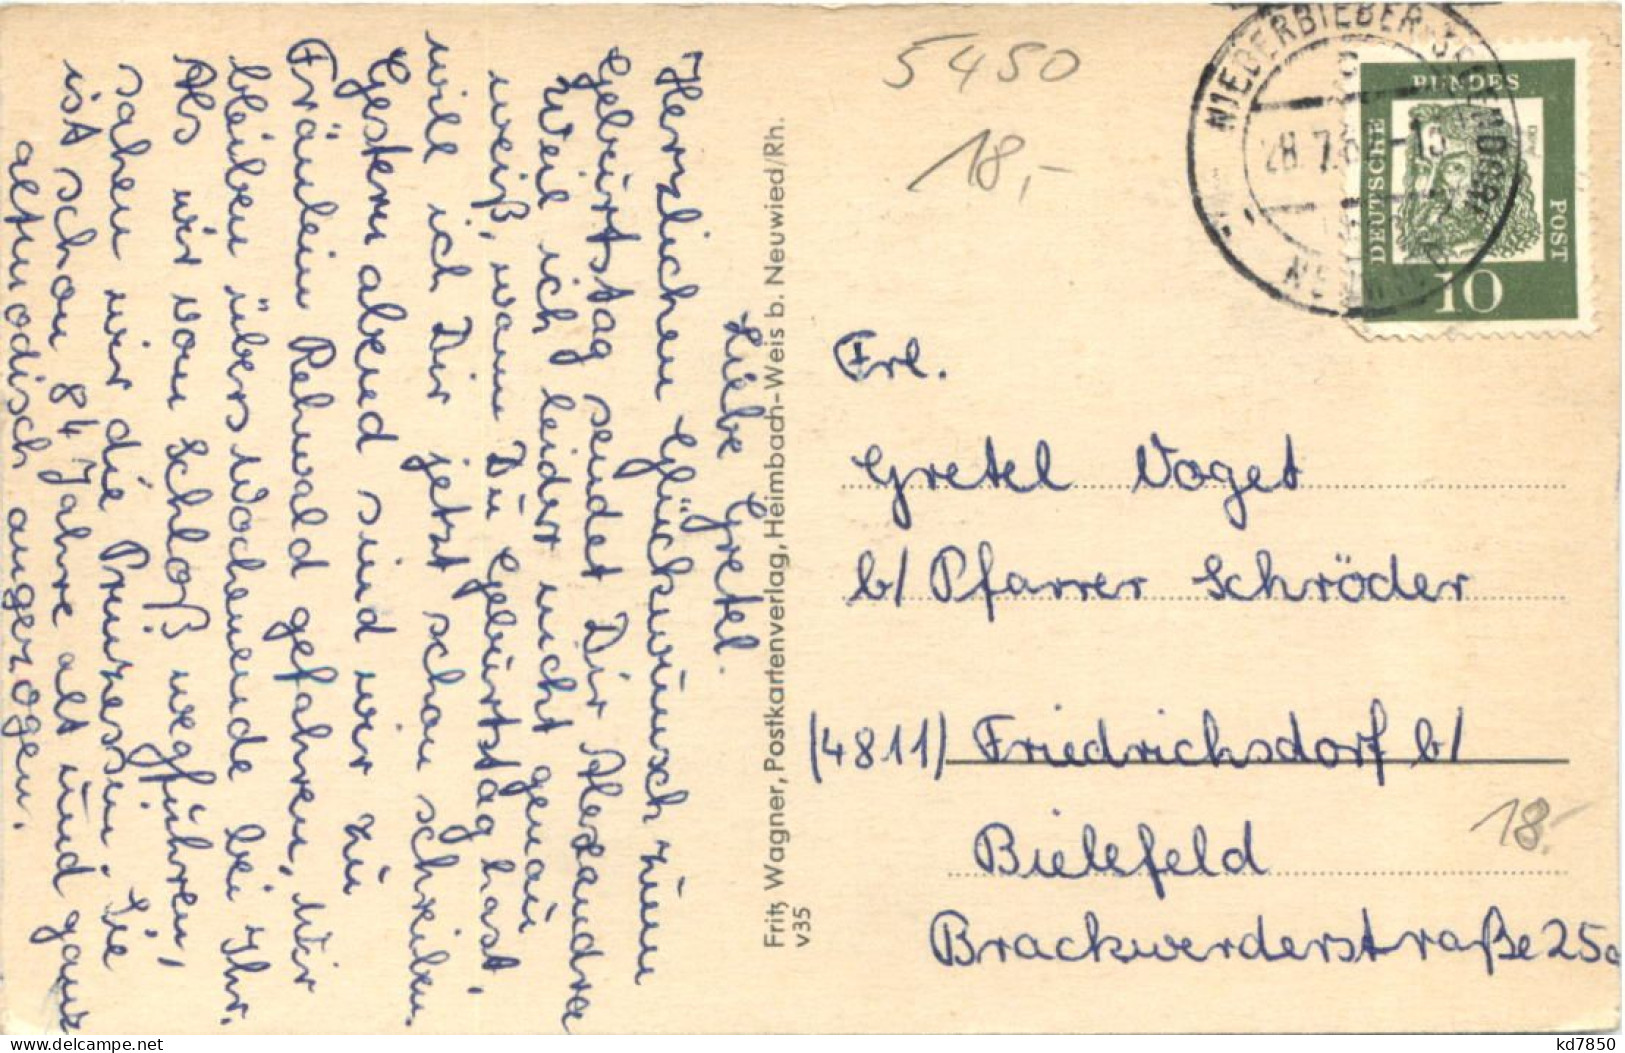 Liebe Gretel.
Herzlichen Glückwünsch zum
Gebürtstag sendet Dir Alexandra
Weil ich leider nicht genau
weiß, wann Du Gebürtstag hast,
will ich Dir jetzt schon schreiben.
Gestern abend sind wir zu
Fräulein Rehwald gefahren, Wir
bleiben übers Wochenende bei Ihr.
Als wir vom Schloß wegführen,
sahen wir die Prinzessin. Sie
ist schon 84 Jahre alt und ganz
altmodisch angezogen.
Fritz Wagner, Postkartenverlag, Heimbach-Weis b. Neuwied/Rh.
v35
5450
18,-
NIEDERBIEBER-SEGENDORF
28.7.6 -15
NEUWIED
DEUTSCHE BUNDES POST
10
Frl.
Gretel Voget
b/ Pfarrer Schröder
(4811) Friedrichsdorf b/
Bielefeld
Brackwerderstraße 25a
18.-
delcampe.net
kd7850